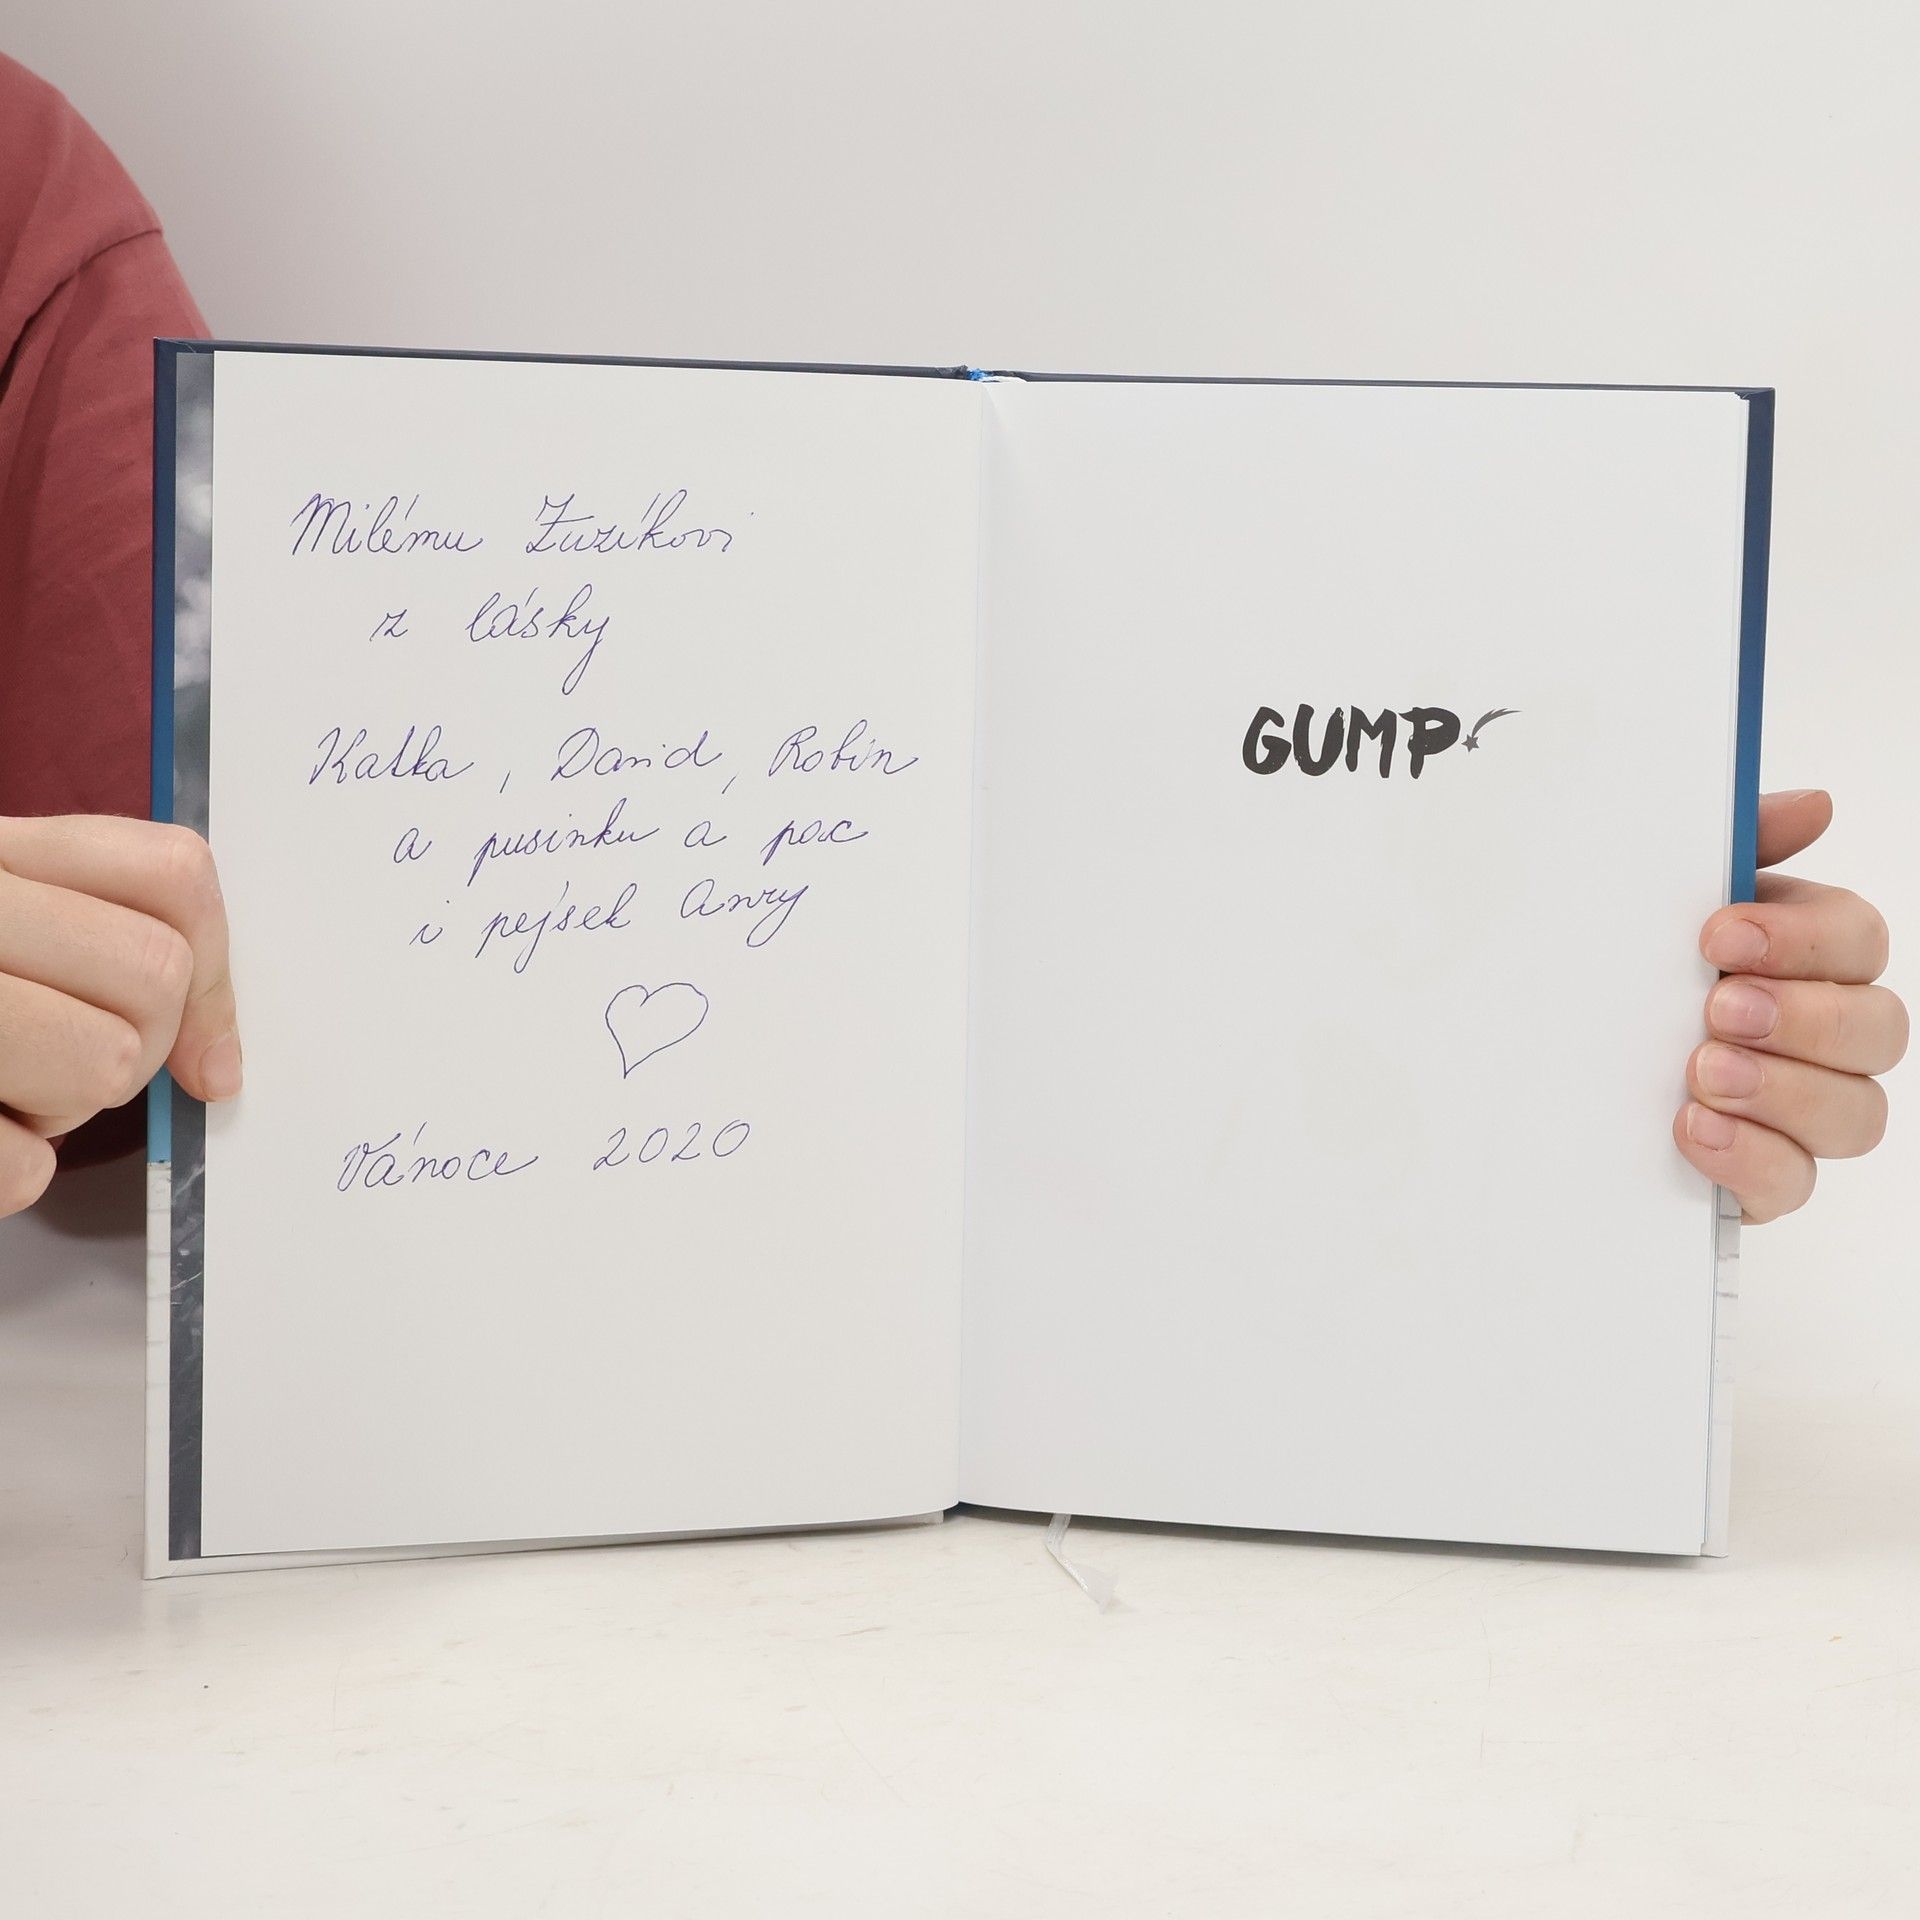 Milému Zuzíkovi
z lásky
Katka, David, Robin
a pusinku a pac
i pejsek Anry
Vánoce 2020
GUMP